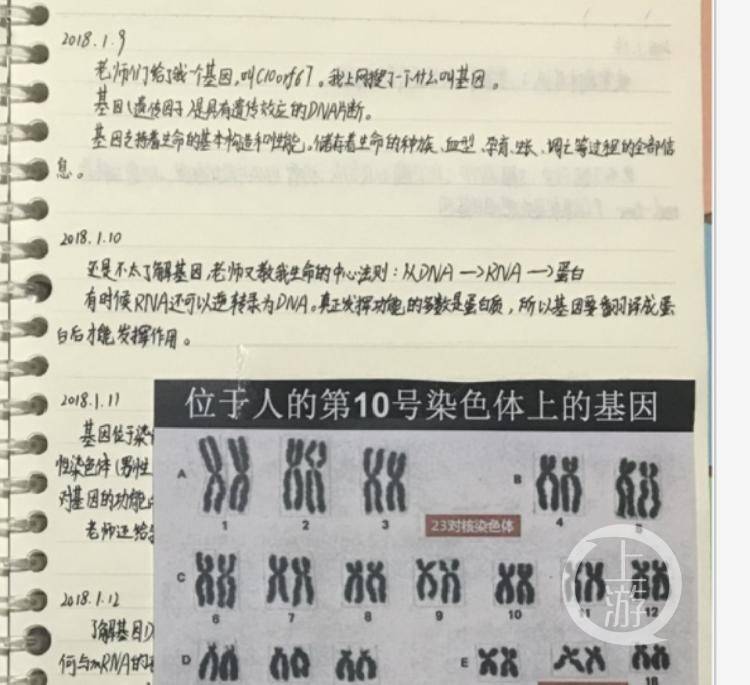 2018.1.9
老师们给了我一个基因,叫C10orf67。我上网搜了一下什么叫基因。
基因(遗传因子)是具有遗传效应的DNA片断。
基因支持着生命的基本构造和性能,储存着生命的种族、血型、孕育、生长、凋亡等过程的全部信
息。
2018.1.10
还是不太了解基因,老师又教我生命的中心法则:从DNA→RNA→蛋白
有时候RNA还可以逆转录为DNA。真正发挥功能的多数是蛋白质,所以基因要翻译成蛋
白后才能发挥作用。
2018.1.11
基因位于染
性染色体(男性
对基因的功能
老师还给
2018.1.12
了解基因
何与mRNA的
位于人的第10号染色体上的基因
A
B
1 2 3
23对核染色体
4 5
C
6 7 8 9 10 11 12
D
E
18
上游